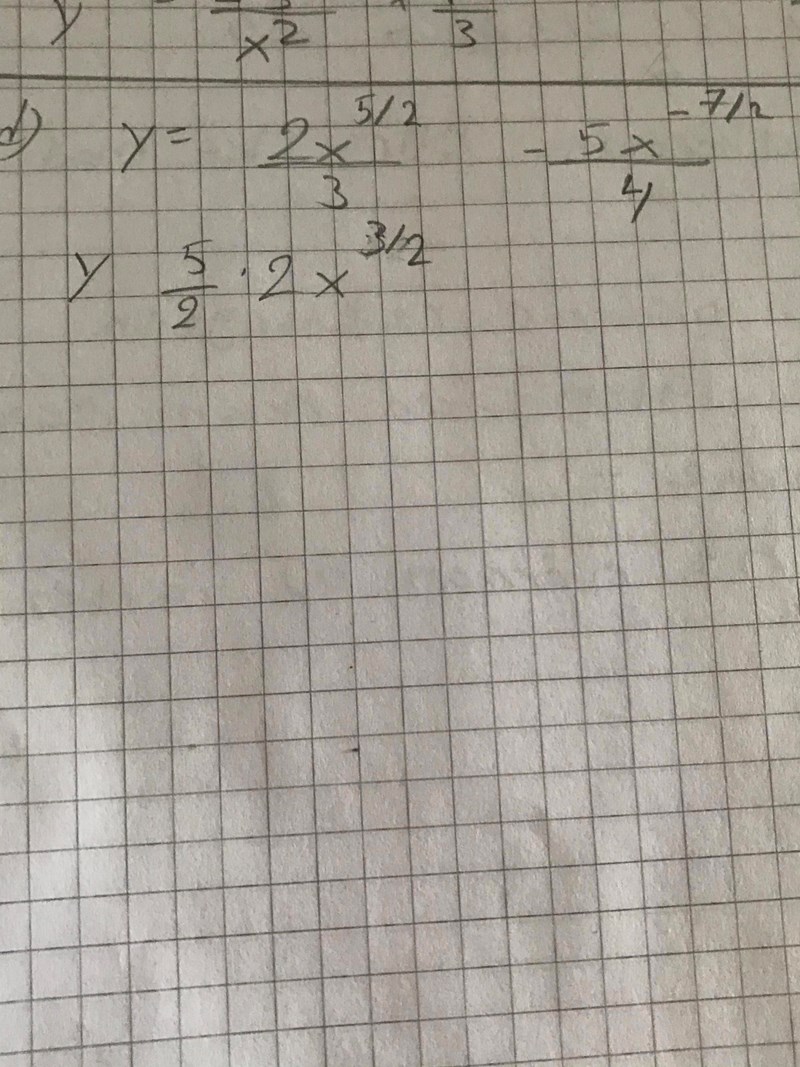 y = x² 3
d) y = 2x^5/2 / 3 - 5x^-7/2 / 4
y 5/2 · 2x^3/2